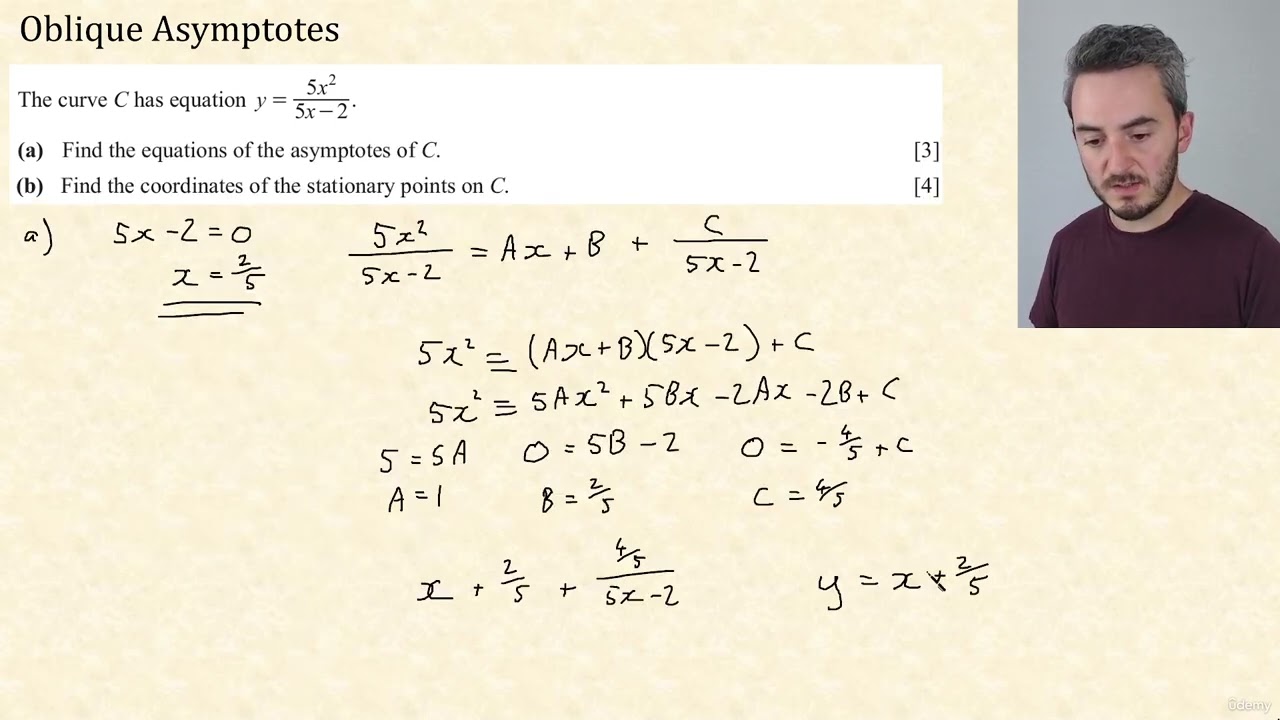 Oblique Asymptotes
The curve C has equation y = 5x²/(5x − 2).
(a) Find the equations of the asymptotes of C. [3]
(b) Find the coordinates of the stationary points on C. [4]
a) 5x − 2 = 0
x = 2/5
5x²/(5x − 2) = Ax + B + C/(5x − 2)
5x² ≡ (Ax + B)(5x − 2) + C
5x² ≡ 5Ax² + 5Bx − 2Ax − 2B + C
5 = 5A 0 = 5B − 2 0 = −4/5 + C
A = 1 B = 2/5 C = 4/5
x + 2/5 + (4/5)/(5x − 2) y = x + 2/5
ûdemy